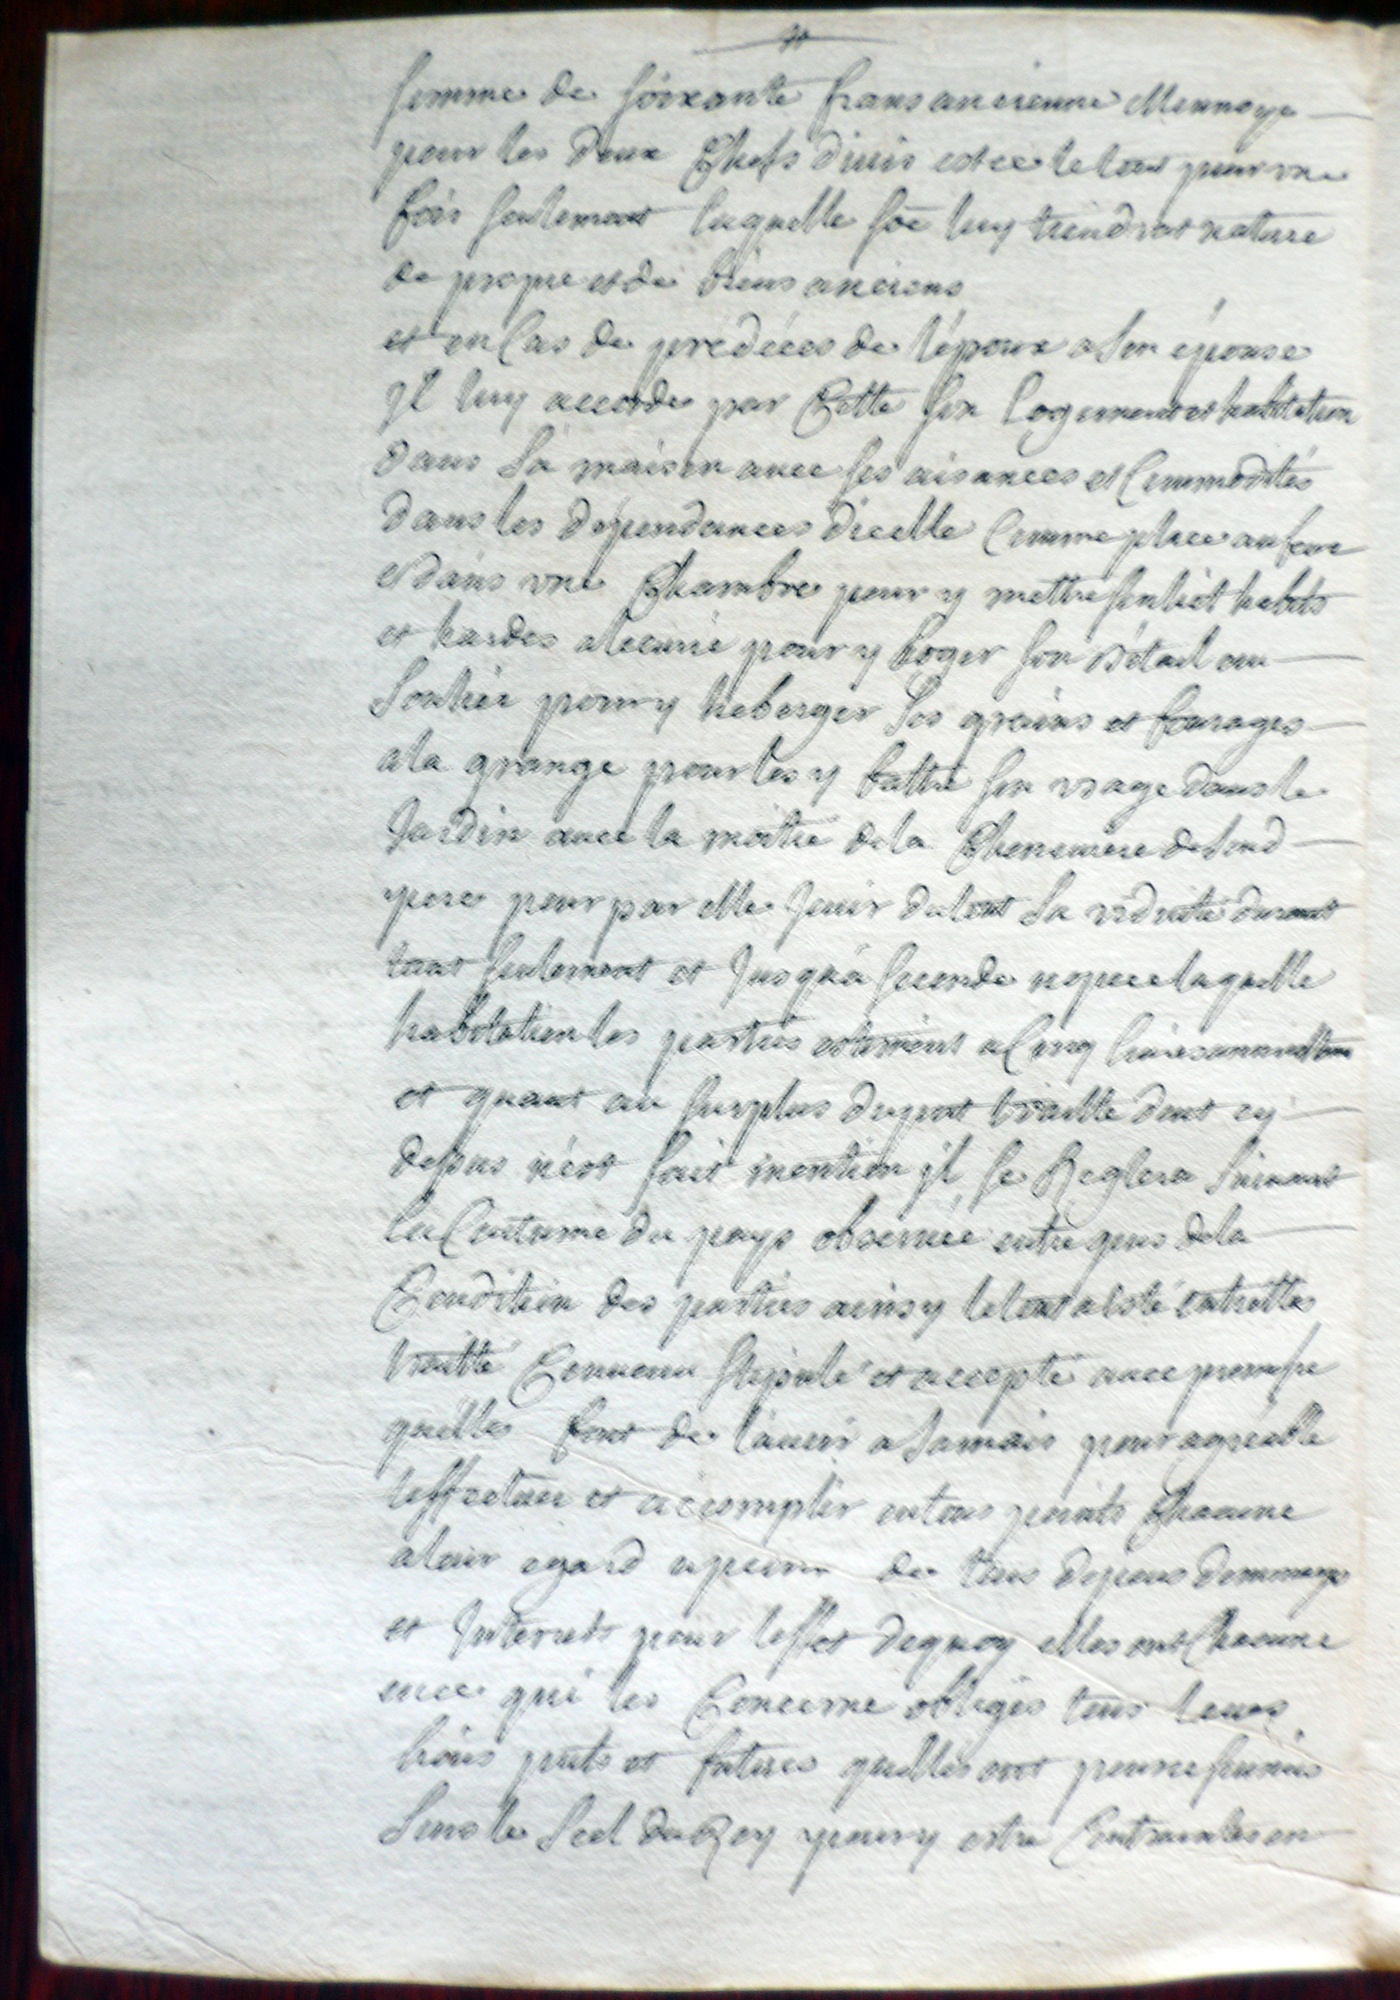 somme de soixante frans ancienne Monnoye
pour les deux Chefs diuis et ce le tout pour vne
fois seulement laquelle soe luy tiendrat nature
de propre et de biens anciens
et en Cas de prédécés de l'époux a son épouse
Il luy accorde par Cette son Logement et habitation
dans Sa maison auec ses aisances et Commodités
dans les dépendances dicelle Comme place au feux
et dans vne Chambre pour y mettre son lict habits
et hardes a lecurie pour y loger son Bétail au
Soulier pour y heberger Ses grains et fourages
a la grange pour les y battre son vsage dans le
Jardin auec la moitié de la Cheneuiere de Sond
pere pour par elle Jouir du tout Sa viduité durant
tant seulement et Jusqu'a seconde nopce laquelle
habitation les parties estiment a Cinq liures
et quant au surplus du pnt traitté dont cy
dessus n'est fait mention il se Reglera Suiuant
la Coutume du pays obseruée entre gens de la
Condition des parties ainsy le tout a esté entrelles
traitté Conuenu stipulé et accepté auec promesse
quelles font de lauoir a Jamais pour agréable
leffectuer et accomplir en tous points Chacune
a leur egard a peine de tous depens dommages
et Interests pour leffet dequoy elles ont Chacune
en ce qui les Concerne obligés tous leurs
biens pnts et futurs quelles ont pour ce soumis
Sous le Scel du Roy pour y estre Contraintes en